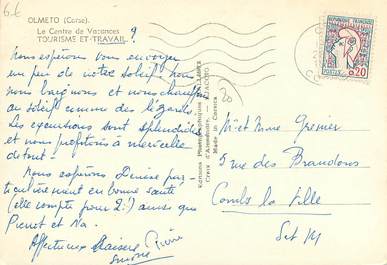 6.E
OLMETO (Corse).
Le Centre de Vacances
TOURISME ET TRAVAIL ?
Nous espérons vous envoyer
un peu de notre soleil. nous
nous baignons et nous chauffons
au soleil comme des lézards.
Les excursions sont splendides
et nous profitons à merveille
de tout.
Nous espérons Denise par-
ticulièrement en bonne santé
(elle compte pour 2!) ainsi que
Pierrot et Na.
Affectueux Baisers Pierre
Simone
20
Editions Photographiques
Made in Corsica
REPUBLIQUE FRANÇAISE
POSTES 0,20
Mr et Mme Grenier
5 rue des Brandons
Combs la Ville
S et M